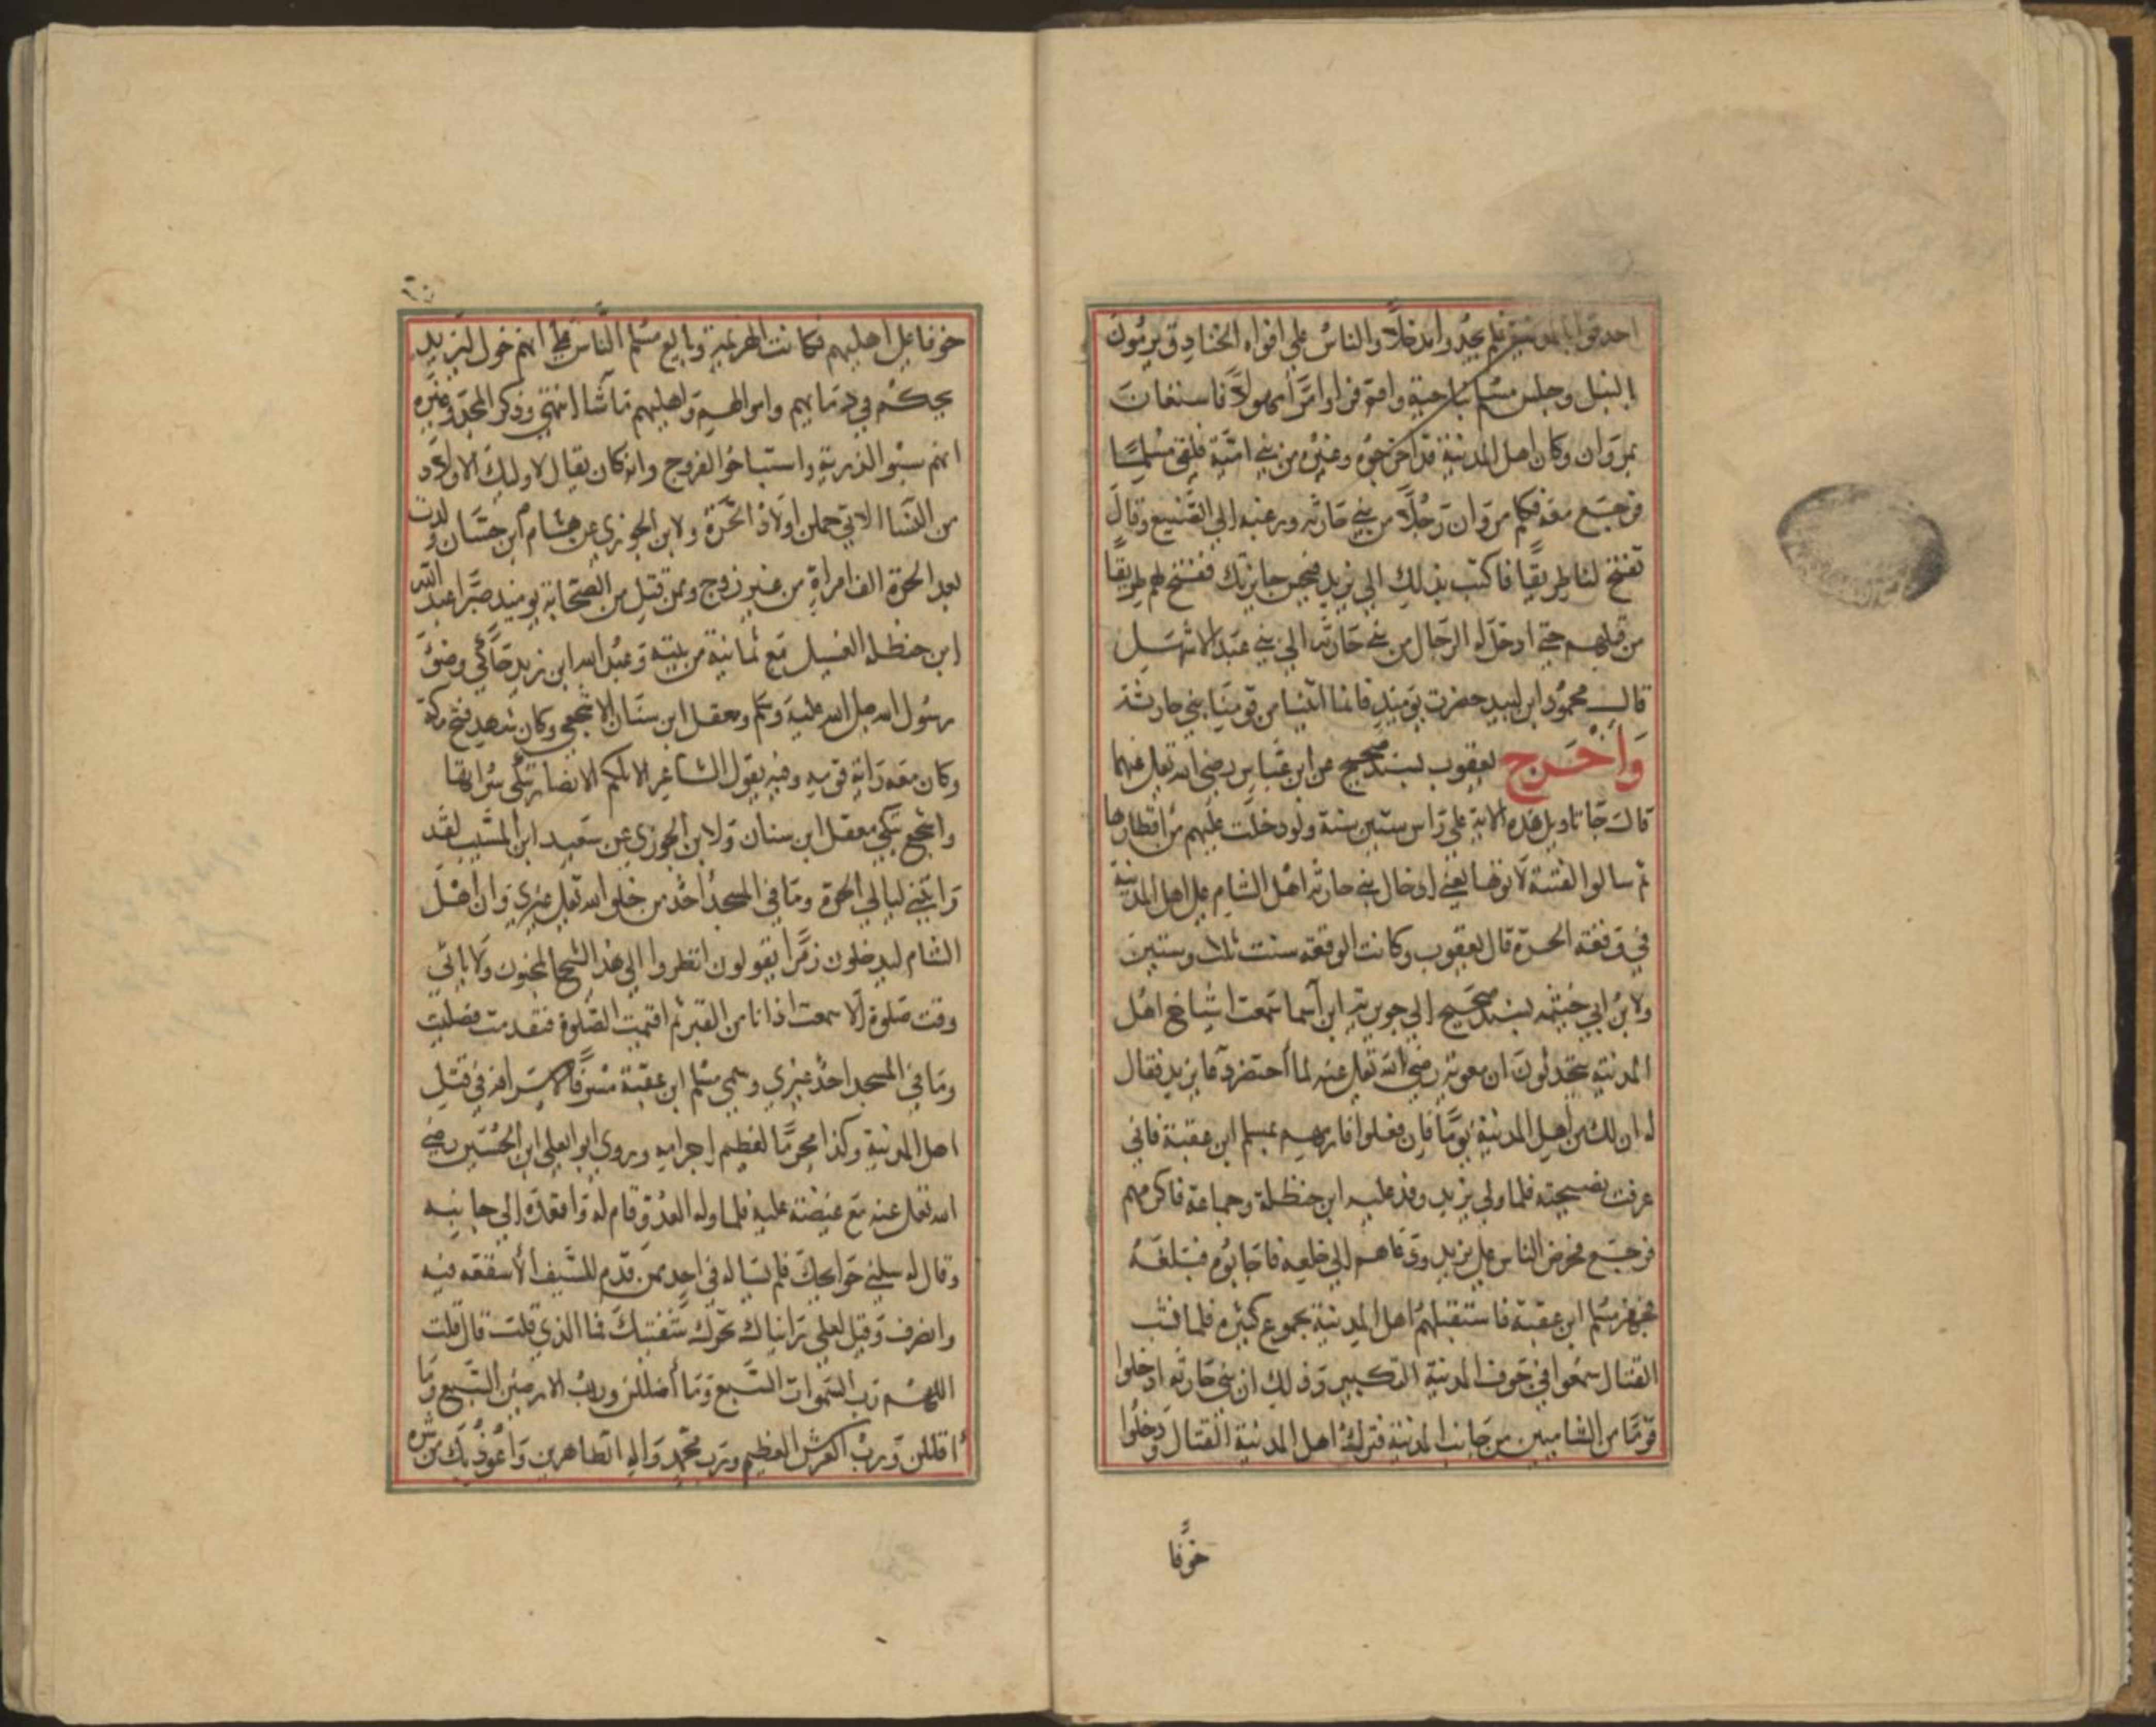 احدقوا بالمدينة فلم يجدوا مدخلا والناس علي افواه الخنادق يرمون
بالنبل وجلس مسلم بناحية واقم فراي امرا مهولا فاستغاث
بمروان وكان اهل المدينة قد اخرجوه وغيره من بني امية فلقي مسلما
فرجع معه فكلم مروان رجلا من بني حارثه ورغبه الي الصنيع وقال
تفتح لنا طريقا فاكتب بذلك الي يزيد فيجيز جايزتك ففتح لهم طريقا
من قبلهم حتي ادخل له الرجال من بني حارثه الي بني عبد الاشهل
قال محمود ابن لبيد حضرت يوميذ فانما اتينا من قومنا بني حارثة
وَاَخْرَج يعقوب بسند صحيح عن ابن عباس رضي الله تعلي عنهما
قال جا تاويل هذه الاية علي راس ستين سنة ولو دخلت عليهم من اقطارها
ثم سالوا الفتنة لاتوها يعني ادخال بني حارثه اهل الشام علي اهل المدينة
في وقعة الحرة قال يعقوب وكانت الوقعة سنت ثلاث وستين
ولابن ابي خيثمه بسند صحيح الي جويريه ابن اسما سمعت اشياخ اهل
المدينة يتحدثون ان معويه رضي الله تعلي عنه لما احتضر دعا يزيد فقال
له ان لك من اهل المدينة يوما فان فعلوا فارمهم بمسلم ابن عقبة فاني
عرفت نصيحته فلما ولي يزيد وفد عليه ابن حنظلة وجماعة فاكرمهم
فرجع فحرض الناس علي يزيد ودعاهم الي خلعه فاجابوه فبلغه
فجهز مسلم ابن عقبة فاستقبلهم اهل المدينة بجموع كثيره فلما نشب
القتال سمعوا في جوف المدينة التكبير وذلك ان بني حارثه ادخلوا
قوما من الشاميين من جانب المدينة فترك اهل المدينة القتال ودخلوا
خوفا
خوفا علي اهليهم فكانت الهزيمة وبايع مسلم الناس علي انهم خول ليزيد
يحكم في دمايهم واموالهم واهليهم ما شا انتهي وذكر المجد وغيره
انهم سبوا الذرية واستباحوا الفروج وانه كان يقال لاوليك الاولاد
من النسا الاتي حملن اولاد الحرة ولابن الجوزي عن هشام ابن حسان ولدت
بعد الحرة الف امراة من غير زوج وممن قتل من الصحابة يوميذ صبرا عبد الله
ابن حنظلة الغسيل مع ثمانية من بنيه وعبد الله ابن زيد حاكي وضوء
رسول الله صلي الله عليه وسلم ومعقل ابن سنان الاشجعي وكان شهد فتح مكة
وكان معه راية قومه وفيه يقول الشاعر الا تلكم الانصار تبكي سراتها
واشجع تبكي معقل ابن سنان ولابن الجوزي عن سعيد ابن المسيب لقد
رايتني ليالي الحرة وما في المسجد احد من خلق الله تعلي غيري وان اهل
الشام ليدخلون زمرا يقولون انظروا الي هذا الشيخ المجنون ولا ياتي
وقت صلوة الا سمعت اذانا من القبر ثم اقيمت الصلوة فتقدمت فصليت
وما في المسجد احد غيري وسمي مسلم ابن عقبة مسرفا لاسرافه في قتل
اهل المدينة وكذا مجرما لعظيم اجرامه وروي ابو العلي ابن الحسين رضي
الله تعلي عنه مع غيضته عليه فلما راه العدو قام له واقعده الي جانبه
وقال له سلني حوايجك فلم يساله في احد ممن قدم للسيف الا شفعه فيه
وانصرف وقيل لعلي رايناك تحرك شفتيك فما الذي قلت قال قلت
اللهم رب السموات السبع وما اضللن ورب الارضين السبع وما
اقللن ورب العرش العظيم ورب محمد واله الطاهرين واعوذ بك من شره